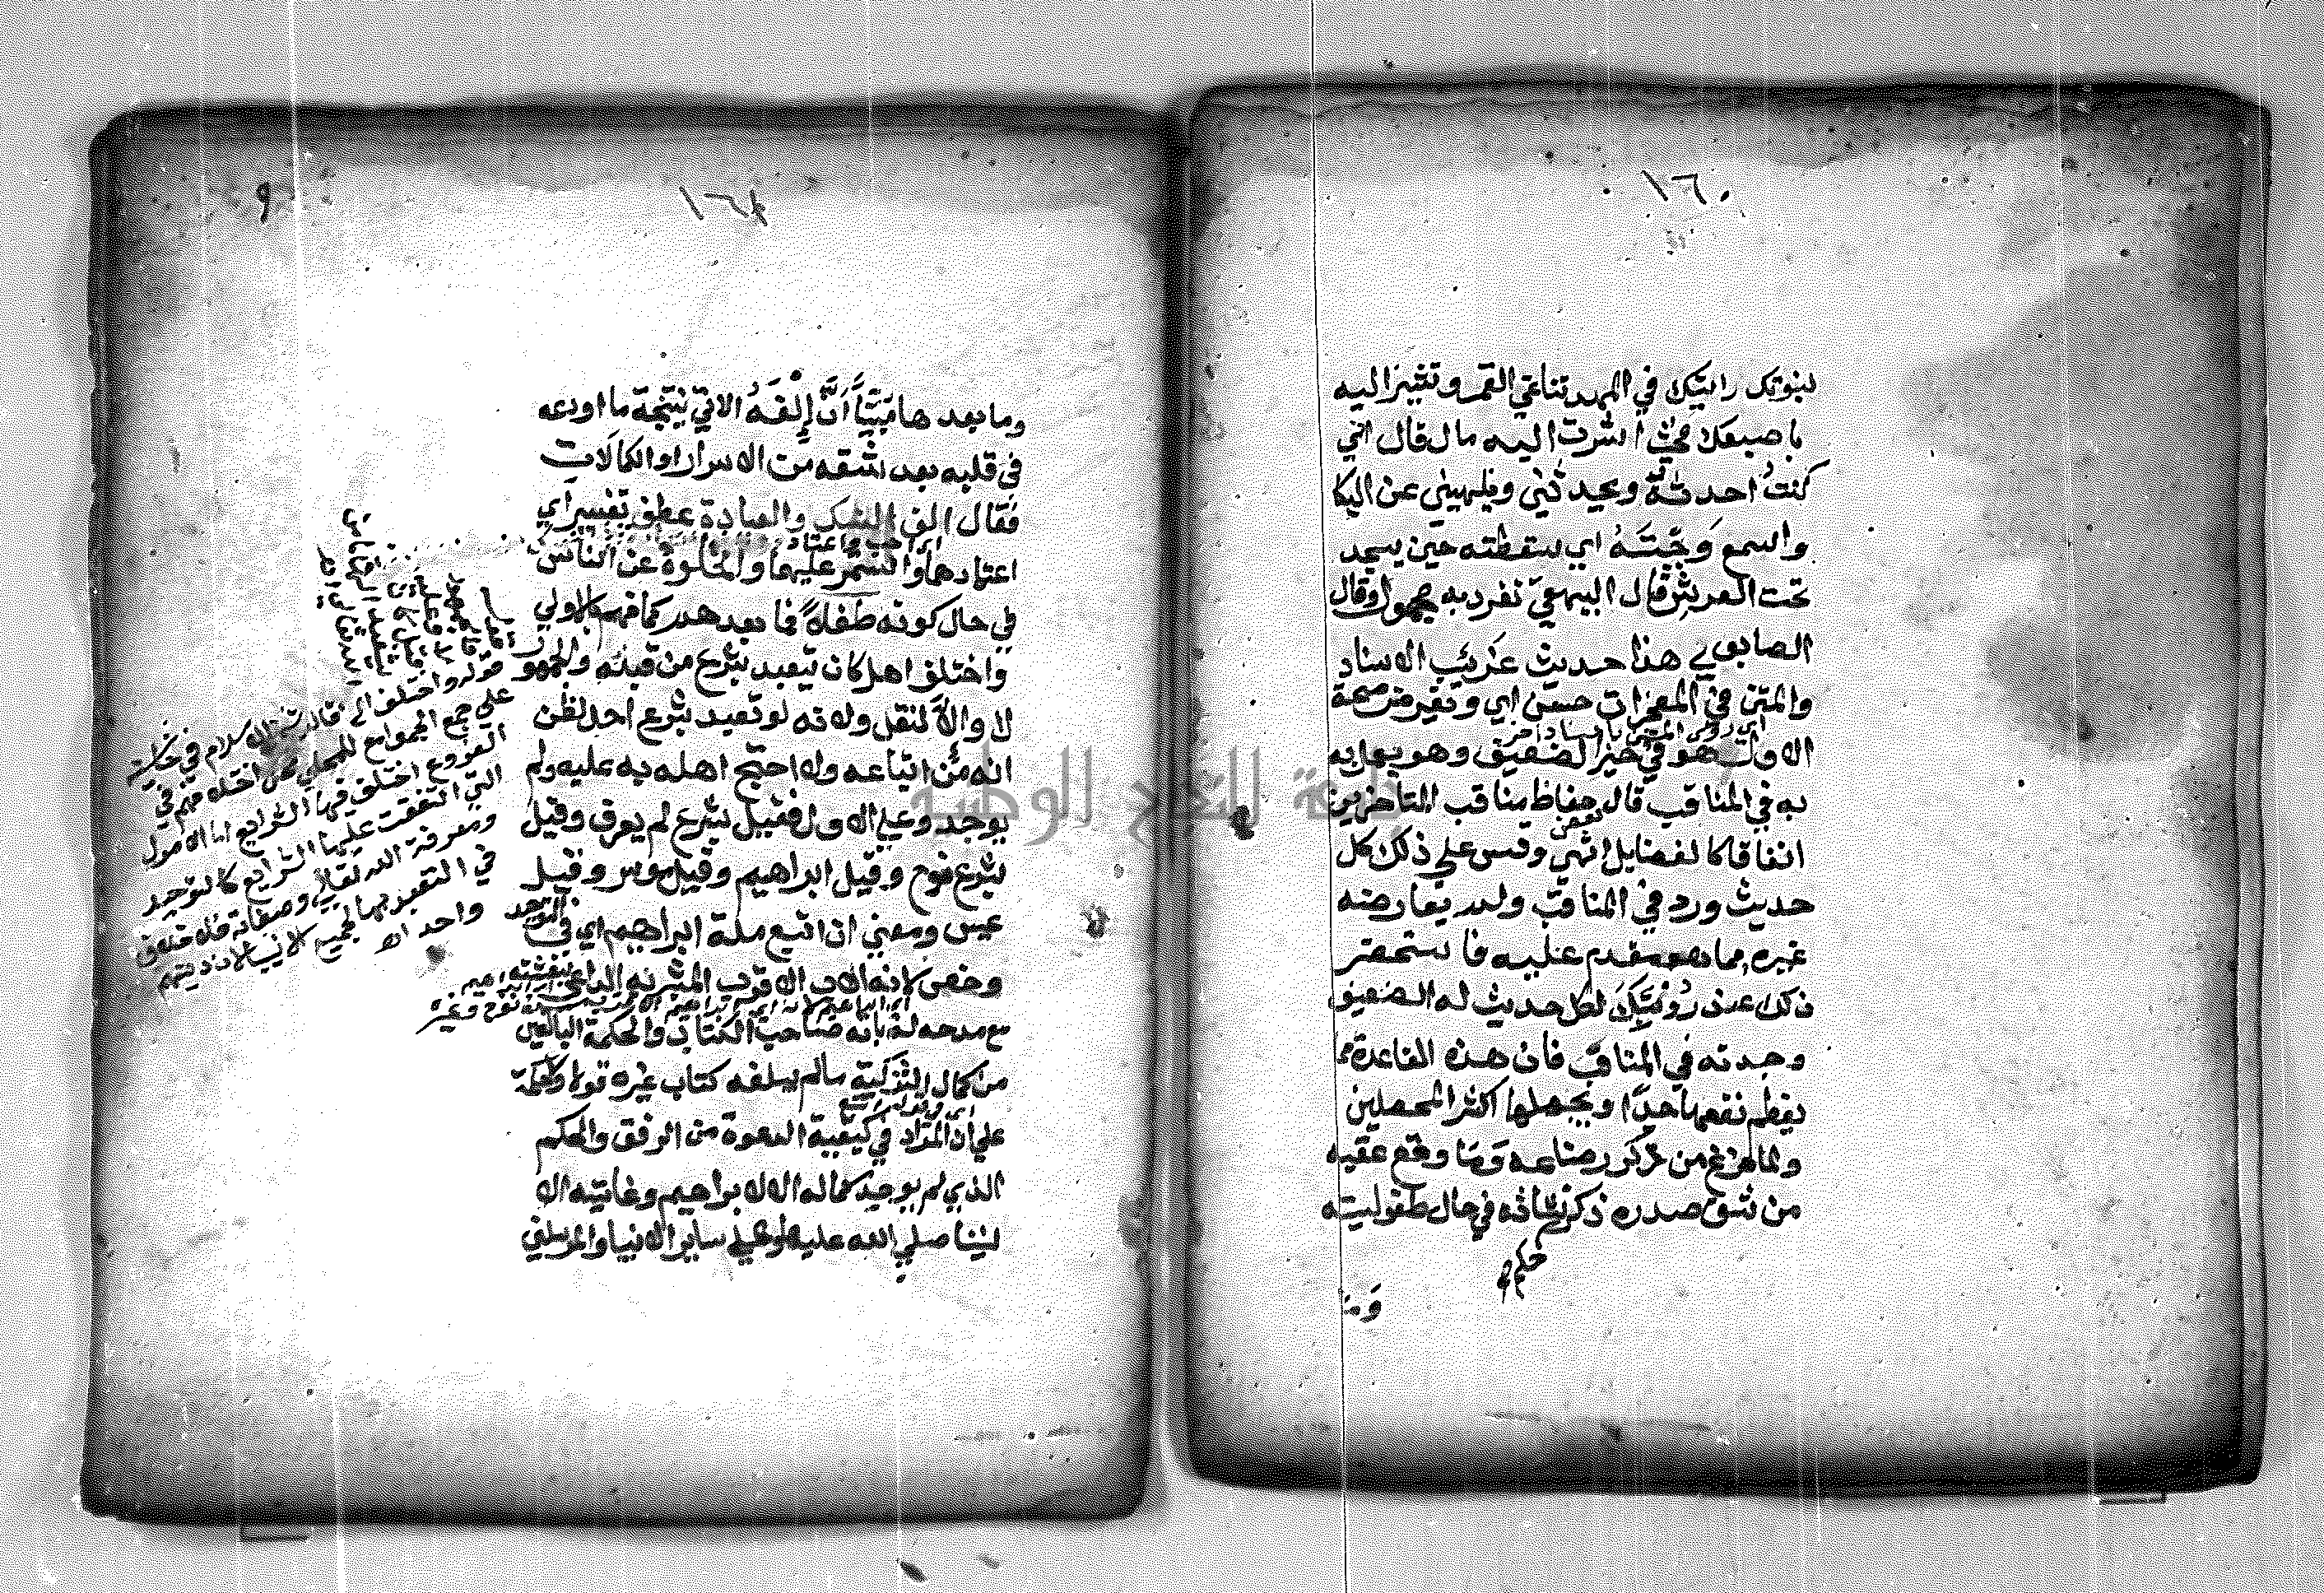 ١٦٠
لنبوتك رايتك في المهد تناغي القمر وتشير اليه
باصبعك فحيث اشرت اليه مال قال اني
كنت احدثه ويحدثني ويلهيني عن البكا
واسمع وجبته اي سقطته حين يسجد
تحت العرش قال البيهقي تفرد به مجهول وقال
الصابوني هذا حديث غريب الاسناد
والمتن في المعجزات حسن اي
الاول فهو في حيز الضعيف وهو يعمل به
به في المناقب قال حفاظ مناقب المتاخرين
بعض
اتفاقا كالفضايل انتهي وقس علي ذلك كل
حديث ورد في المناقب ولم يعارضه
غيره مما هو مقدم عليه فاستحضر
ذلك عند رؤيتك لكل حديث له الضعيف
وجدته في المناقب فان هذه القاعدة مما
يعظم نفعها جدا ويجهلها اكثر المحصلين
ولما فرغ من ذكر رضاعه وما وقع عقبه
من شق صدره ذكر نشاته في حال طفوليته
وما
٩
وما بعدها مبينا ان إلفه الاتي نتيجة ما اودعه
في قلبه بعد شقه من الاسرار والكمالات
فقال الف النسك والعبادة عطف تفسير اي
اعتادهما واستمر عليهما والخلوة عن الناس
في حال كونه طفلا فما بعد هد كما فهم بالاولي
واختلف اهل كان يتعبد بشرع من قبله والجمهور
لا والا لنقل ولانه لو تعبد بشرع احد لظن
انه من اتباعه ولاحتج اهله به عليه ولم
يوجد وعلي الاول فقيل بشرع لم يعرف وقيل
بشرع نوح وقيل ابراهيم وقيل موسي وقيل
عيسي ومعني ان اتبع ملة ابراهيم اي في
التوحيد
وخص لانه الاب الاقرب
مع مدحه له بانه صاحب الكتاب والحكمة البالغين
من كمال التزكية مالم يبلغه كتاب غيره
علي ان المراد في كيفية الدعوة من الرفق والحكم
الذي لم يوجد كماله الا لابراهيم وغايته الا
لنبينا صلي الله عليه وعلي ساير الانبيا والمرسلين
قوله واختلف الخ قال شيخ الاسلام في حاشيته
علي جمع الجوامع للمحلي محل اختلافهم في
الفروع اختلف فيها الشرايع اما الاصول
التي اتفقت عليها الشرايع كالتوحيد
ومعرفة الله تعالي وصفاته فلا خلاف
في التعبد بها لجميع الانبيا لان دينهم
واحد اه
جامعة النجاح الوطنية